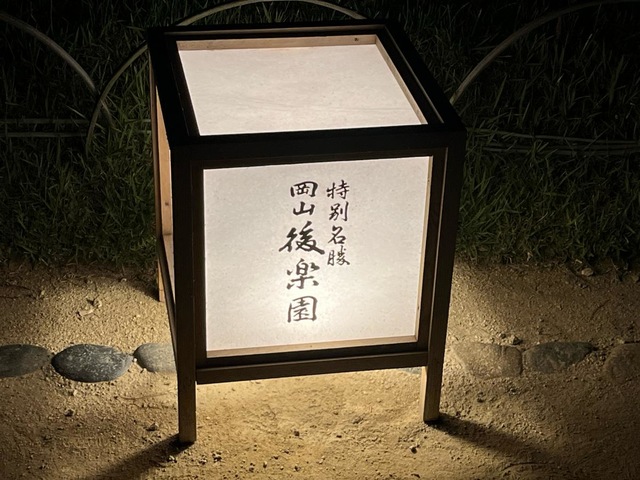 特別名勝
岡山後楽園